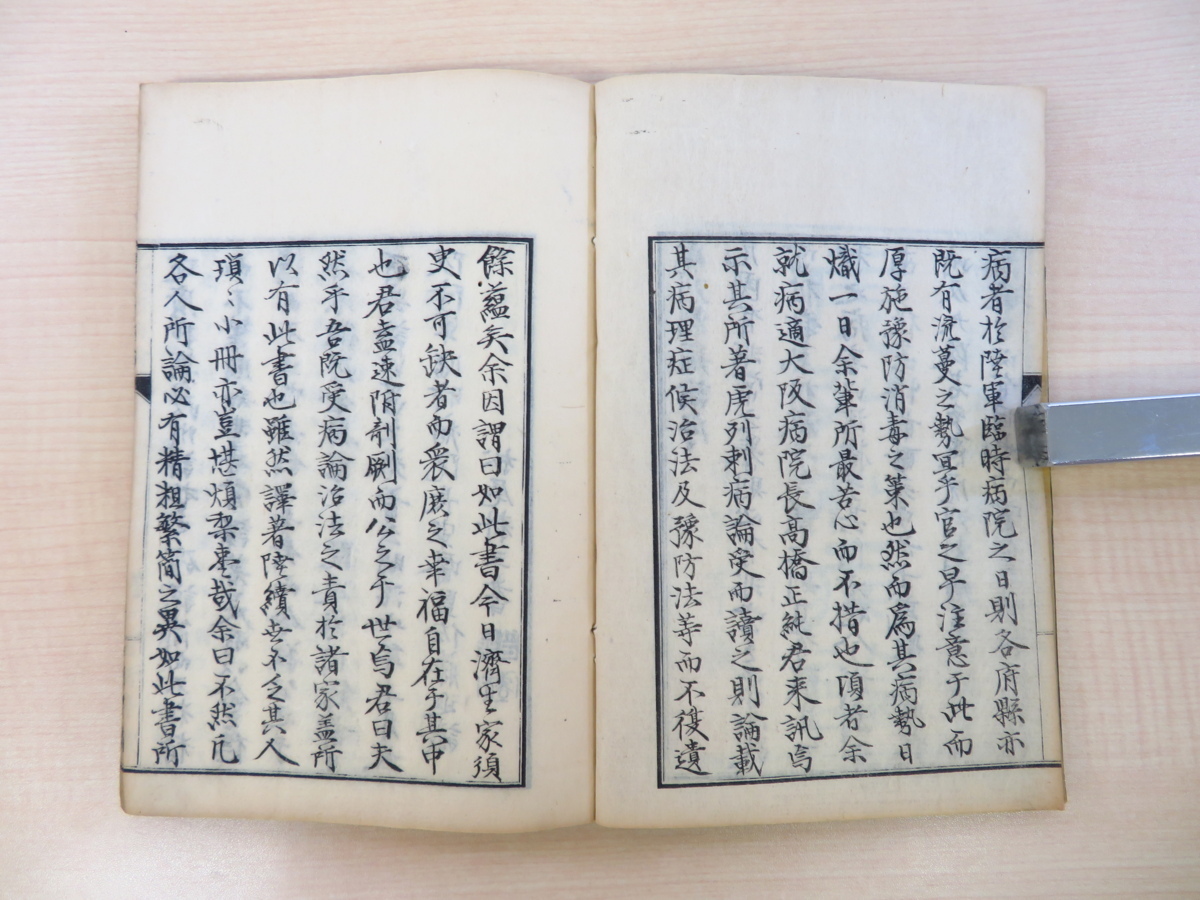 病者於陸軍臨時病院之日則各府縣亦
既有流蔓之勢宜乎官之早注意于此而
厚施豫防消毒之策也然而為其病勢日
熾一日余輩所最苦心而不措也頃者余
就病適大阪病院長高橋正純君来訊焉
示其所著虎列剌病論受而讀之則論載
其病理症候治法及豫防法等而不復遺
餘蘊矣余因謂曰如此書今日濟生家須
臾不可缺者而衆庶之幸福自在于其中
也君盍速附剞劂而公之于世焉君曰夫
然乎吾既受病論治法之責於諸家盖所
以有此書也雖然譯著陸續世不乏其人
瑣〻小冊亦豈堪煩梨棗哉余曰不然凡
各人所論必有精粗繁簡之異如此書所